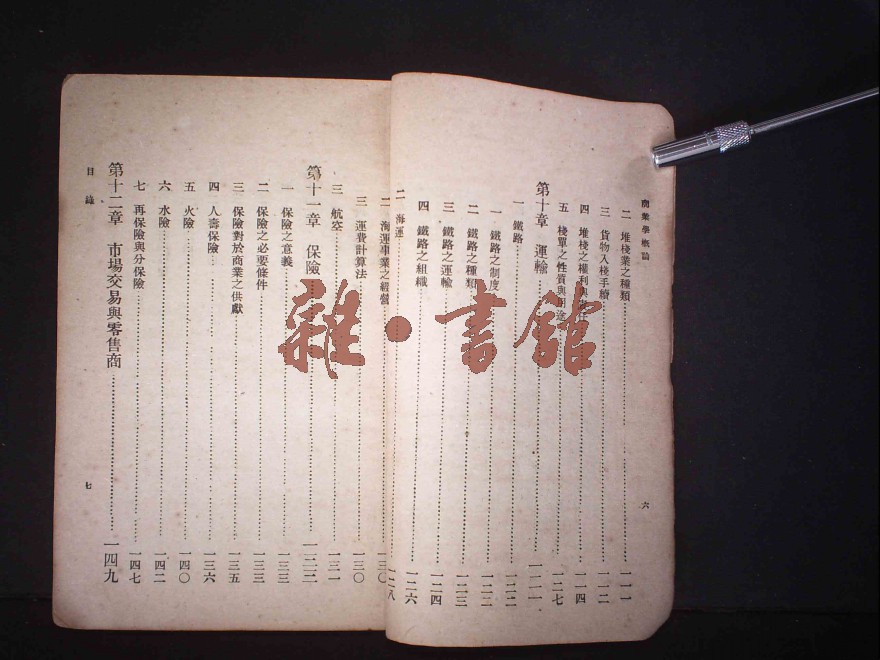 商業學概論
二 堆棧業之種類 一一一
三 貨物入棧手續 一一二
四 堆棧之權利與 一一四
五 棧單之性質與用途 一一七
第十章 運輸
一 鐵路
一 鐵路之制度
二 鐵路之種類 一二三
三 鐵路之運輸 一二四
四 鐵路之組織 一二六
二 海運 一二八
二 海運事業之經營 一三〇
三 運費計算法 一三〇
三 航空 一三一
第十一章 保險
一 保險之意義 一三三
二 保險之必要條件 一三三
三 保險對於商業之供獻 一三五
四 人壽保險 一三六
五 火險 一四〇
六 水險 一四二
七 再保險與分保險 一四七
第十二章 市場交易與零售商 一四九
目錄
六
七
雜·書館